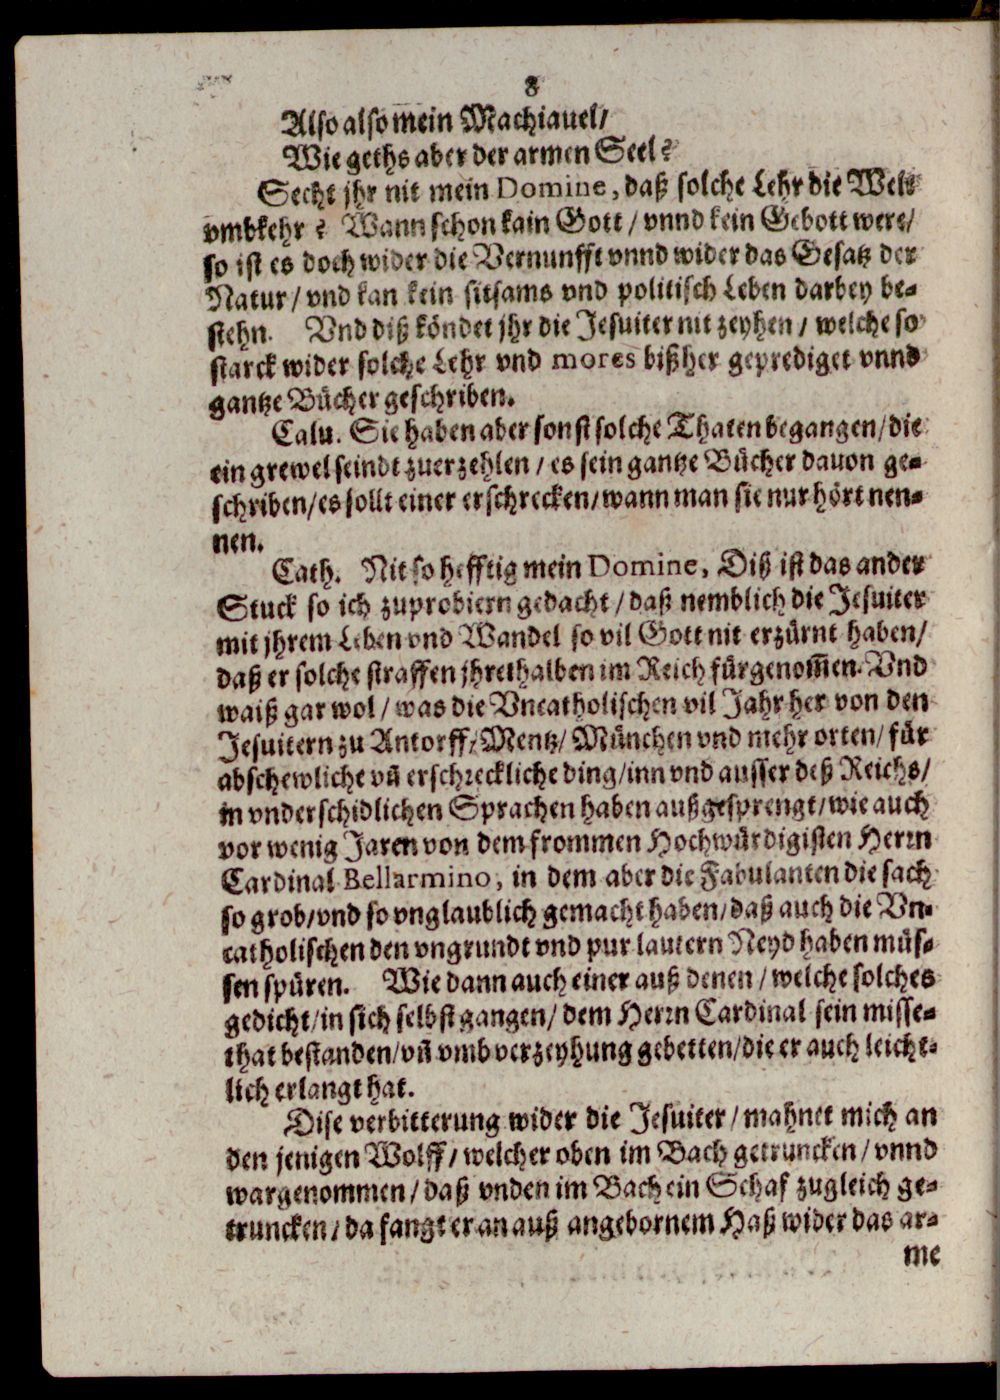 8
Also also mein Machiauel/
Wie geths aber der armen Seel?
Secht jhr nit mein Domine, daß solche Lehr die Welt
vmbkehr? Wann schon kain Gott / vnnd kein Gebott were/
so ist es doch wider die Vernunfft vnnd wider das Gesatz der
Natur / vnd kan kein sitsams vnd politisch Leben darbey be-
stehn. Vnd diß köndet jhr die Jesuiter nit zeyhen / welche so
starck wider solche Lehr vnd mores bißher geprediget vnnd
gantze Bücher geschriben.
Calu. Sie haben aber sonst solche Thaten begangen/die
ein grewel seindt zuerzehlen / es sein gantze Bücher dauon ge-
schriben/es sollt einer erschrecken/wann man sie nur hört nen-
nen.
Cath. Nit so hefftig mein Domine, Diß ist das ander
Stuck so ich zuprobiern gedacht / daß nemblich die Jesuiter
mit jhrem Leben vnd Wandel so vil Gott nit erzürnt haben/
daß er solche straffen jhrethalben im Reich fürgenom̄en. Vnd
waiß gar wol / was die Vncatholischen vil Jahr her von den
Jesuitern zu Antorff/Mentz/ München vnd mehr orten/ für
abschewliche vn̄ erschreckliche ding/inn vnd ausser deß Reichs/
in vnderschidlichen Sprachen haben außgesprengt/wie auch
vor wenig Jaren von dem frommen Hochwürdigisten Herrn
Cardinal Bellarmino, in dem aber die Fabulanten die sach
so grob/vnd so vnglaublich gemacht haben/daß auch die Vn-
catholischen den vngrundt vnd pur lautern Neyd haben müs-
sen spüren. Wie dann auch einer auß denen / welche solches
gedicht/in sich selbst gangen/ dem Herrn Cardinal sein misse-
that bestanden/vn̄ vmb verzeyhung gebetten/die er auch leicht-
lich erlangt hat.
Dise verbitterung wider die Jesuiter / mahnet mich an
den jenigen Wolff / welcher oben im Bach getruncken / vnnd
wargenommen / daß vnden im Bach ein Schaf zugleich ge-
truncken / da fangt er an auß angebornem Haß wider das ar-
me